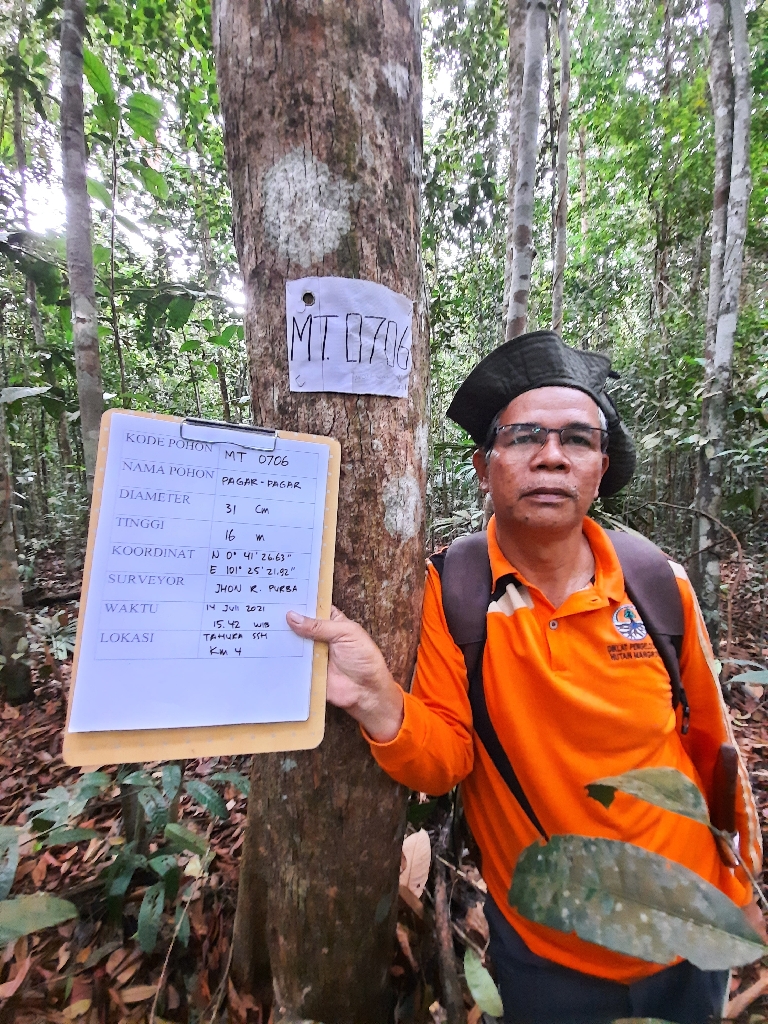 MT. 0706
KODE POHON MT 0706
NAMA POHON PAGAR-PAGAR
DIAMETER 31 Cm
TINGGI 16 m
KOORDINAT N 0° 41' 26.63"
E 101° 25' 21.92"
SURVEYOR JHON R. PURBA
WAKTU 14 JULI 2021
15.42 WIB
LOKASI TAHURA SSH
Km 4
HUTAN